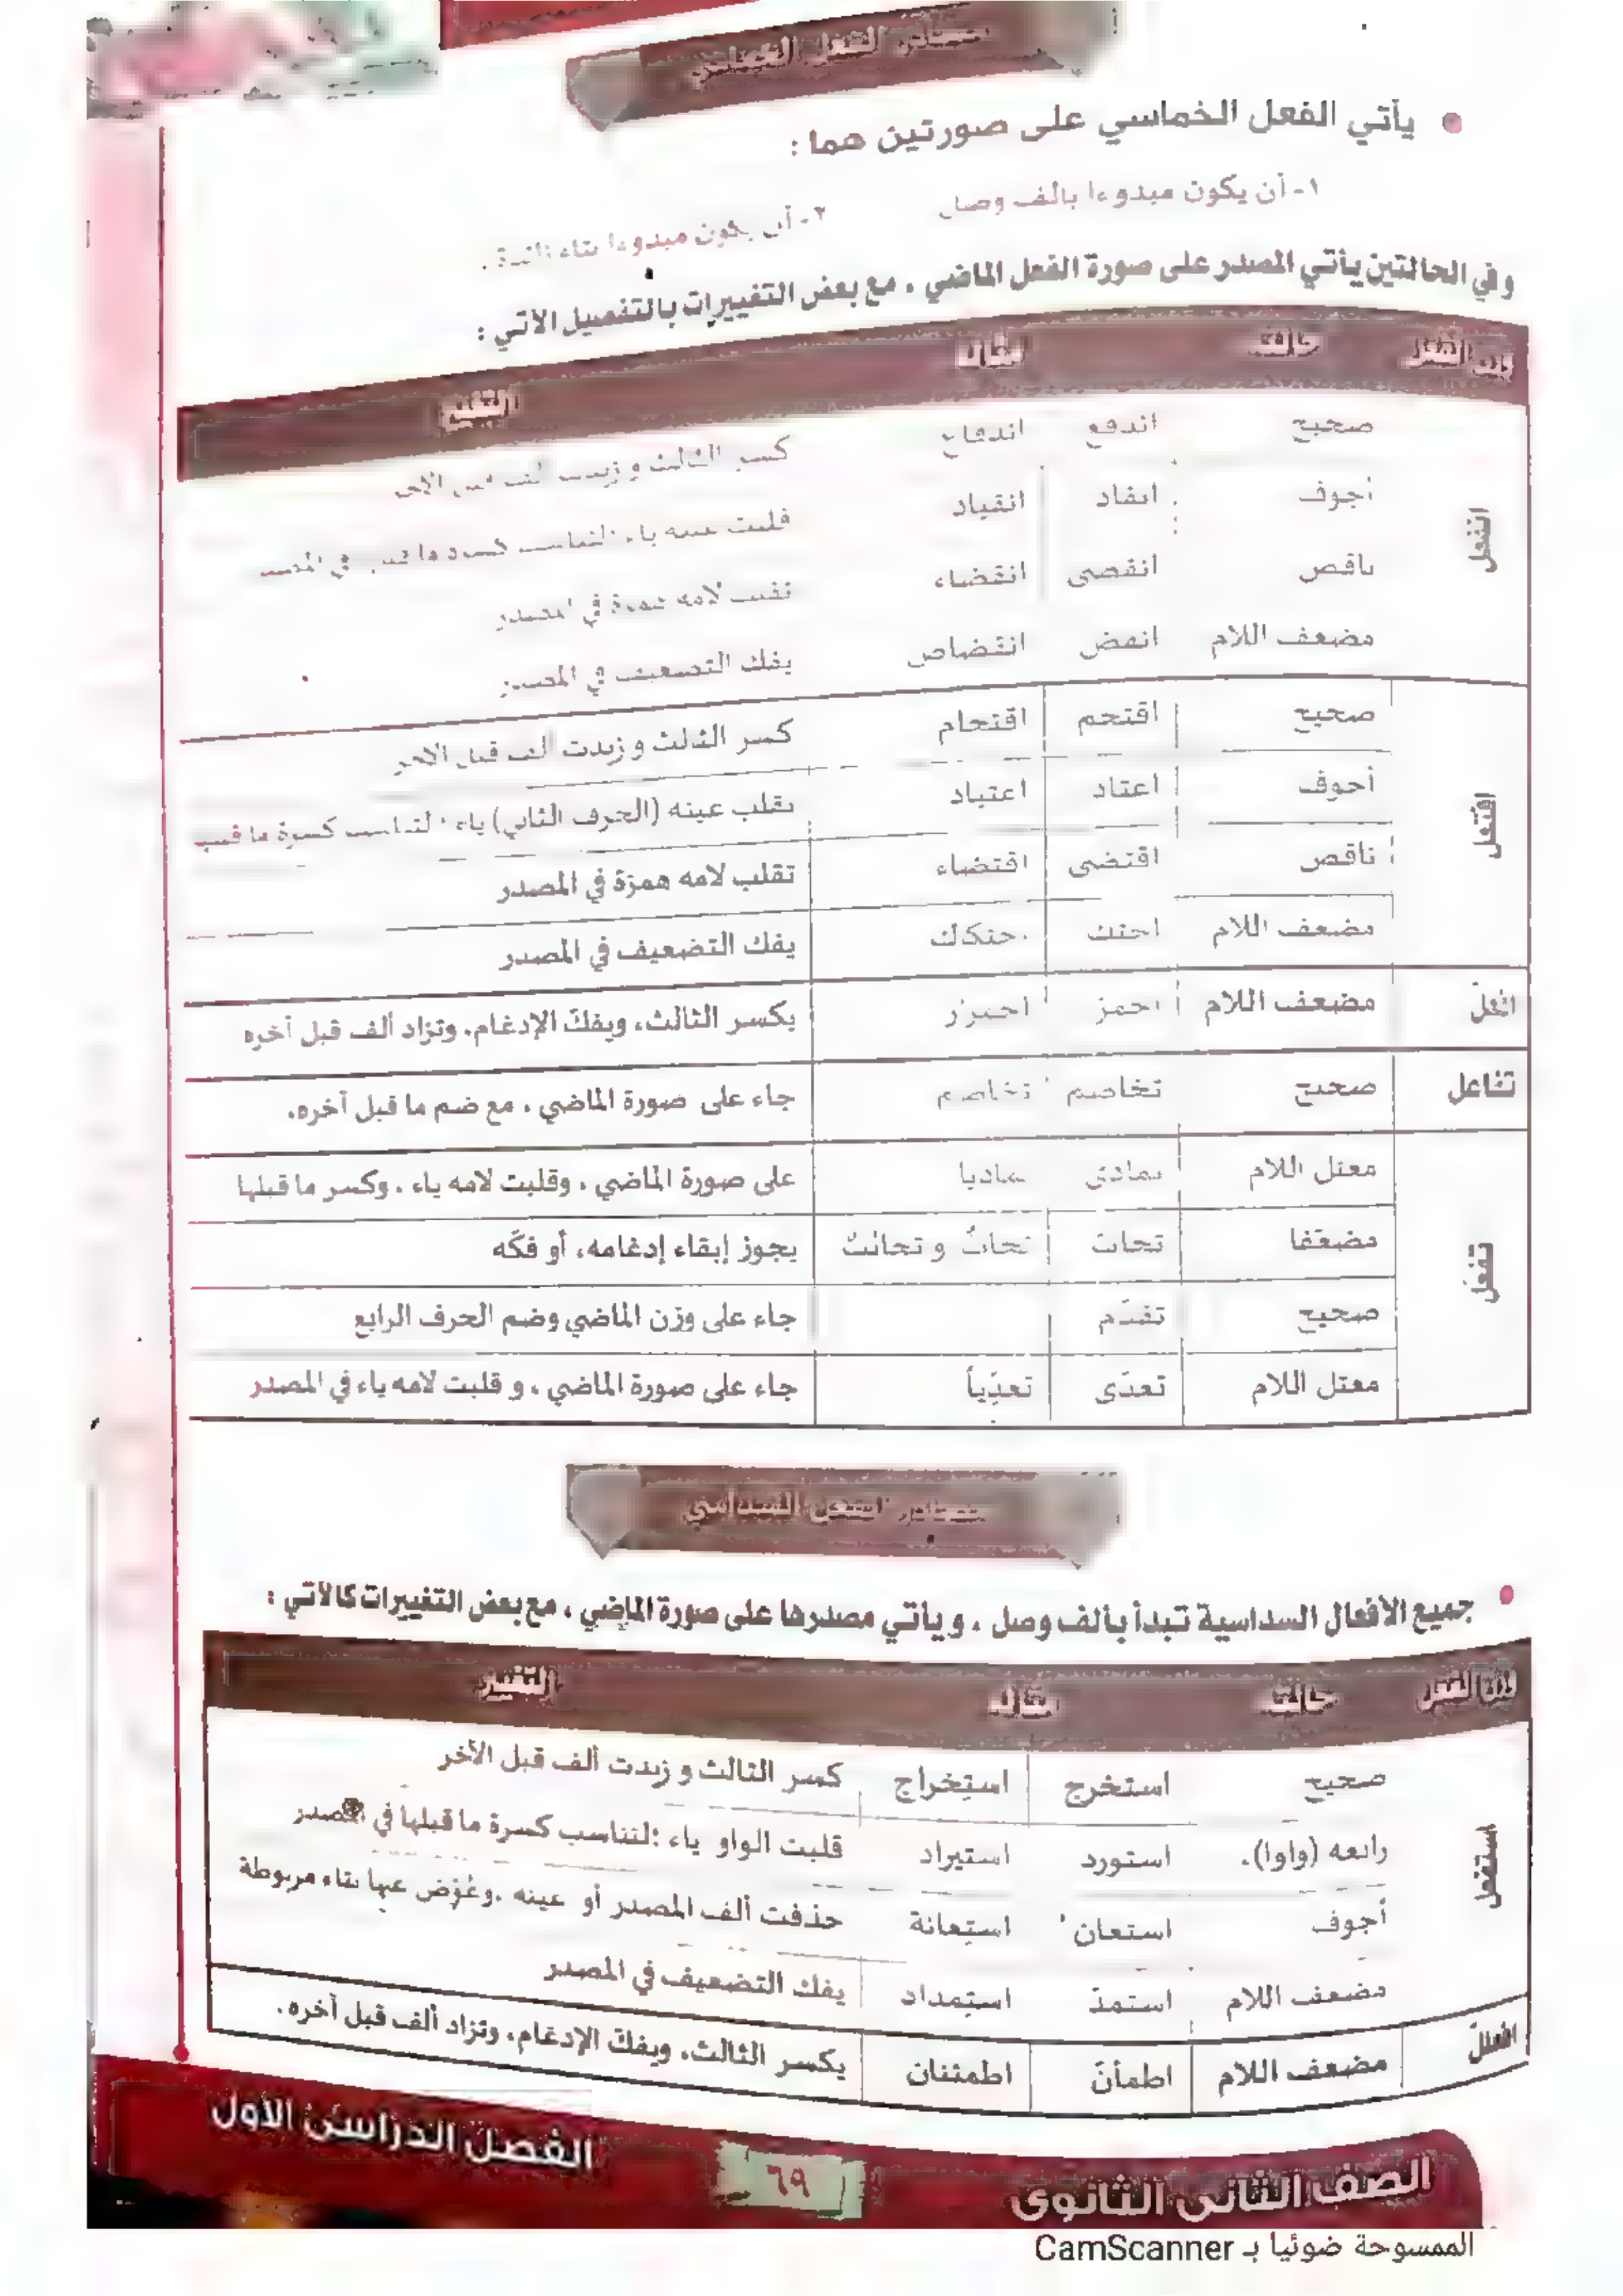 مصادر الفعل الخماسي
يأتي الفعل الخماسي على صورتين هما :
١- أن يكون مبدوءا بألف وصل ٢- أن يكون مبدوءا بتاء
وفي الحالتين يأتي المصدر على صورة الفعل الماضي ، مع بعض التغييرات بالتفصيل الآتي :
وزن الفعل حالته مثاله التغيير
انفعل
صحيح اندفع اندفاع كسر الثالث وزيدت ألف قبل الآخر
أجوف انقاد انقياد قلبت عينه ياء لتناسب كسرة ما قبل في المصدر
ناقص انقضى انقضاء تقلب لامه همزة في المصدر
مضعف اللام انقض انقضاض يفك التضعيف في المصدر
افتعل
صحيح اقتحم اقتحام كسر الثالث وزيدت ألف قبل الآخر
أجوف اعتاد اعتياد تقلب عينه (الحرف الثاني) ياء لتناسب كسرة ما قبل
ناقص اقتضى اقتضاء تقلب لامه همزة في المصدر
مضعف اللام احتك احتكاك يفك التضعيف في المصدر
افعلّ مضعف اللام احمر احمرار يكسر الثالث، ويفك الإدغام، وتزاد ألف قبل آخره
تفاعل صحيح تخاصم تخاصم جاء على صورة الماضي ، مع ضم ما قبل آخره.
تفعل
معتل اللام تمادى تماديا على صورة الماضي ، وقلبت لامه ياء ، وكسر ما قبلها
مضعفا يجوز إبقاء إدغامه، أو فكّه
صحيح تقدّم جاء على وزن الماضي وضم الحرف الرابع
معتل اللام تعدّى تعدّياً جاء على صورة الماضي ، و قلبت لامه ياء في المصدر
مصادر الفعل السداسي
جميع الأفعال السداسية تبدأ بألف وصل ، ويأتي مصدرها على صورة الماضي ، مع بعض التغييرات كالآتي :
وزن الفعل حالته مثاله التغيير
استفعل
صحيح استخرج استخراج كسر الثالث و زيدت ألف قبل الآخر
رابعه (واوا). استورد استيراد قلبت الواو ياء ؛لتناسب كسرة ما قبلها في المصدر
أجوف استعان استعانة حذفت ألف المصدر أو عينه ،وعُوّض عنها بتاء مربوطة
مضعف اللام استمدّ استمداد يفك التضعيف في المصدر
افعللّ مضعف اللام اطمأنّ اطمئنان يكسر الثالث، ويفك الإدغام، وتزاد ألف قبل آخره.
الصف الثاني الثانوي
٦٩
الفصل الدراسي الأول
الممسوحة ضوئيا بـ CamScanner